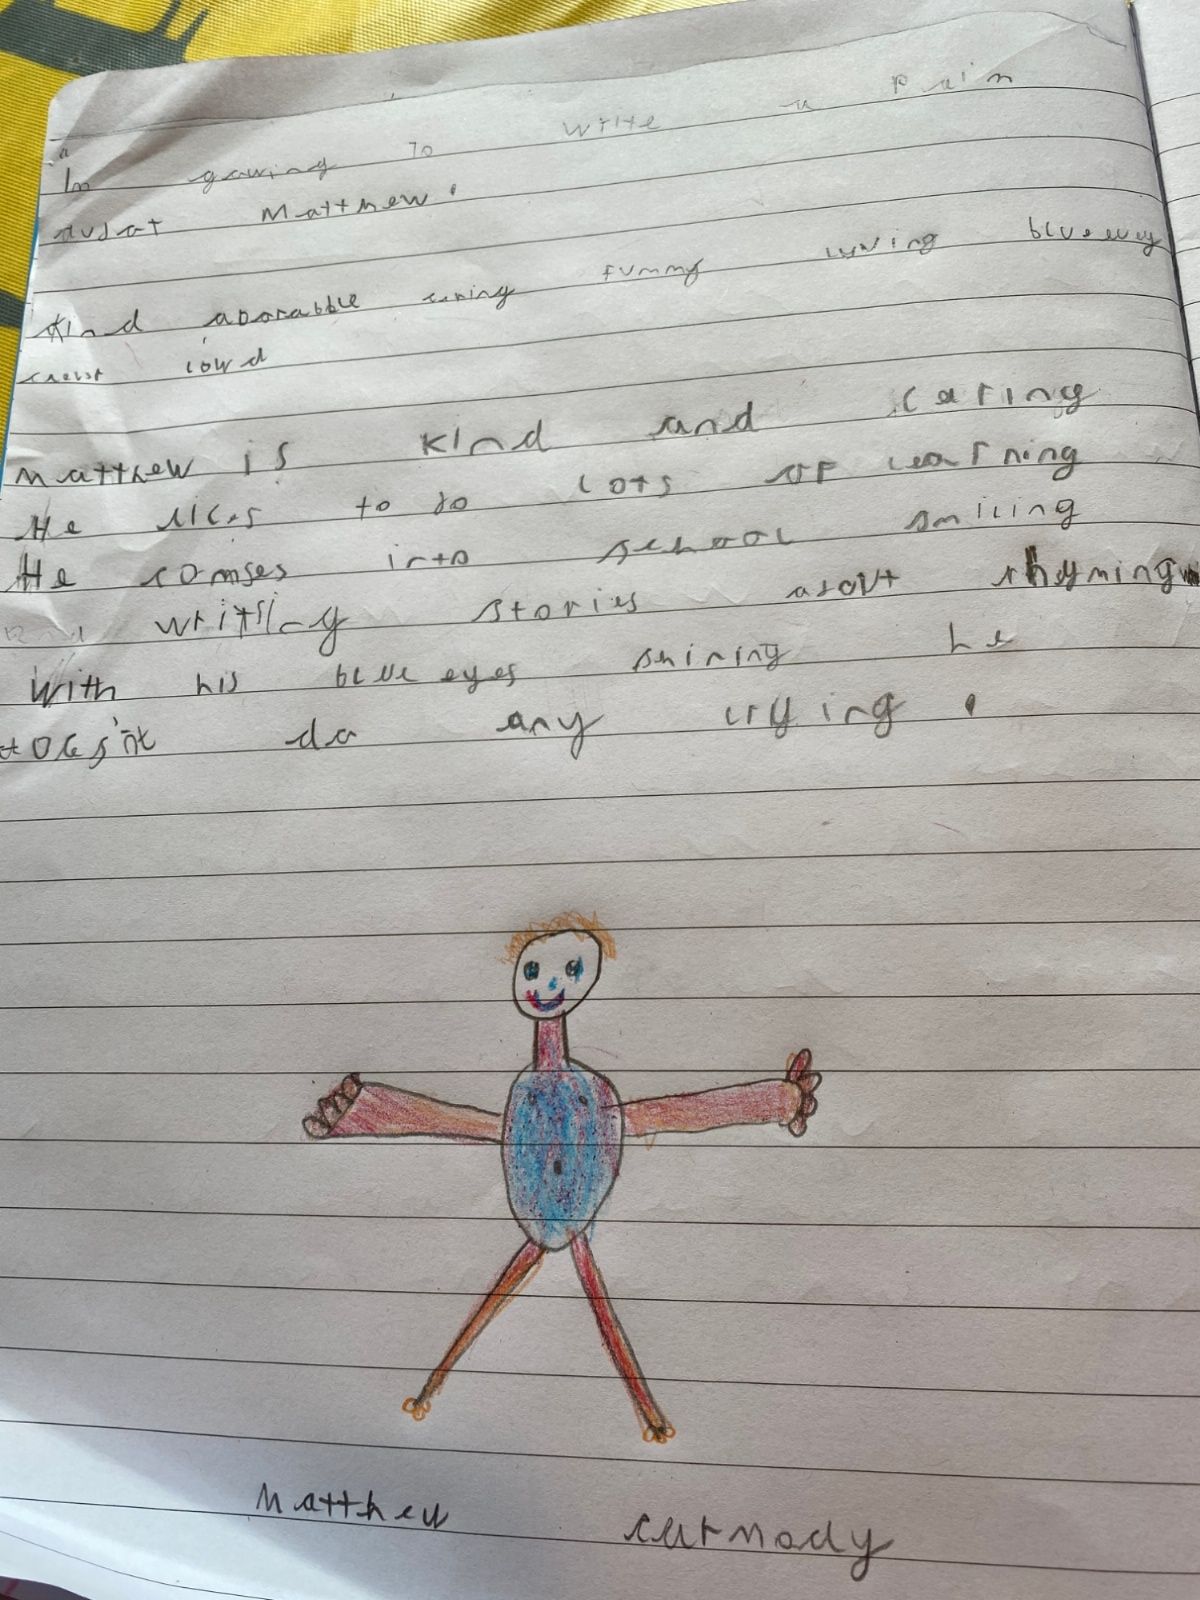 Im gowing to write a Paim
aubat Matthew.
Kind aborabble caring funny luving blueeuey
loud
Matthew is kind and caring
He lices to do lots of learning
He comses into school smiling
writsing stories abovt rhyming
With his blue eyes shining he
doesn't do any crying.
Matthew carmody